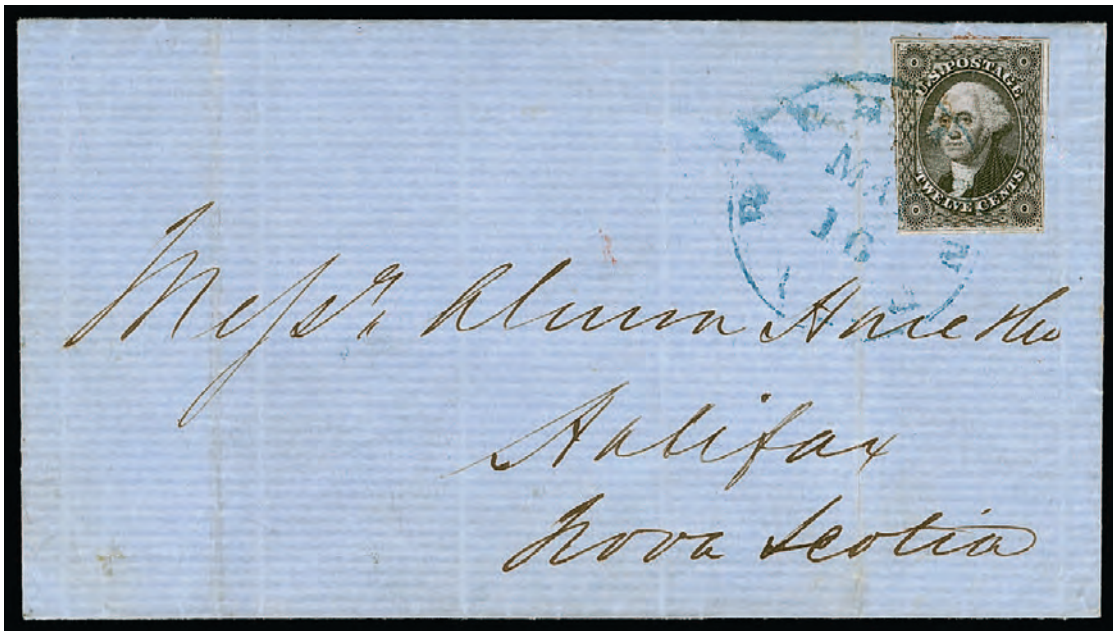 U.S. POSTAGE
TWELVE CENTS
MA
10
Messrs Almon Hare & Co
Halifax
Nova Scotia